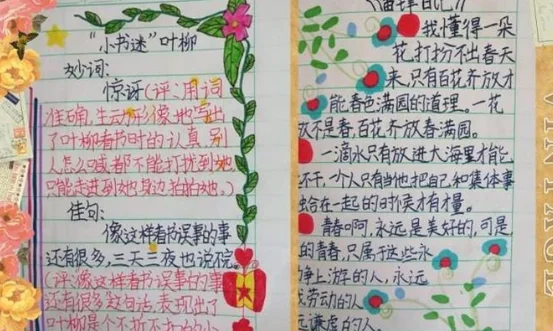 “小书迷”叶柳
妙词:
惊讶(评:用词
准确,生动形像地写出
了叶柳看书时的认真,别
人怎么喊都不能打扰到她,
只能走进到她身边拍拍她。)
佳句:
像这样看书误事的事
还有很多,三天三夜也说不完。
(评:像这样看书误事的事
还有很多这句话,表现出了
《雷锋日记》
我懂得一朵
花,打扮不出春天
来,只有百花齐放才
能春色满园的道理。一花
放不是春,百花齐放春满园。
一滴水只有放进大海里才能
不干,一个人只有当他把自己和集体事
合在一起的时候才有力量。
青春啊,永远是美好的,可是
的青春,只属于这些永
争上游的人,永远
劳动的人
远谦虚的人